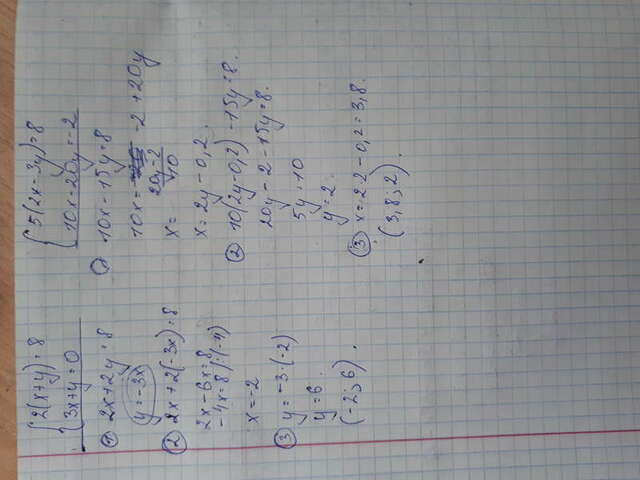 2(x+y)=8
3x+y=0
1 2x+2y=8
y=-3x
2 2x+2(-3x)=8
2x-6x=8
-4x=8|:(-4)
x=-2
3 y=-3·(-2)
y=6.
(-2;6).
5(2x-3y)=8
10x-20y=-2
1 10x-15y=8
10x= -2+20y
x= 20y-2
10
x=2y-0,2.
2 10(2y-0,2)-15y=8.
20y-2-15y=8.
5y=10
y=2.
3 x=2·2-0,2=3,8.
(3,8;2).